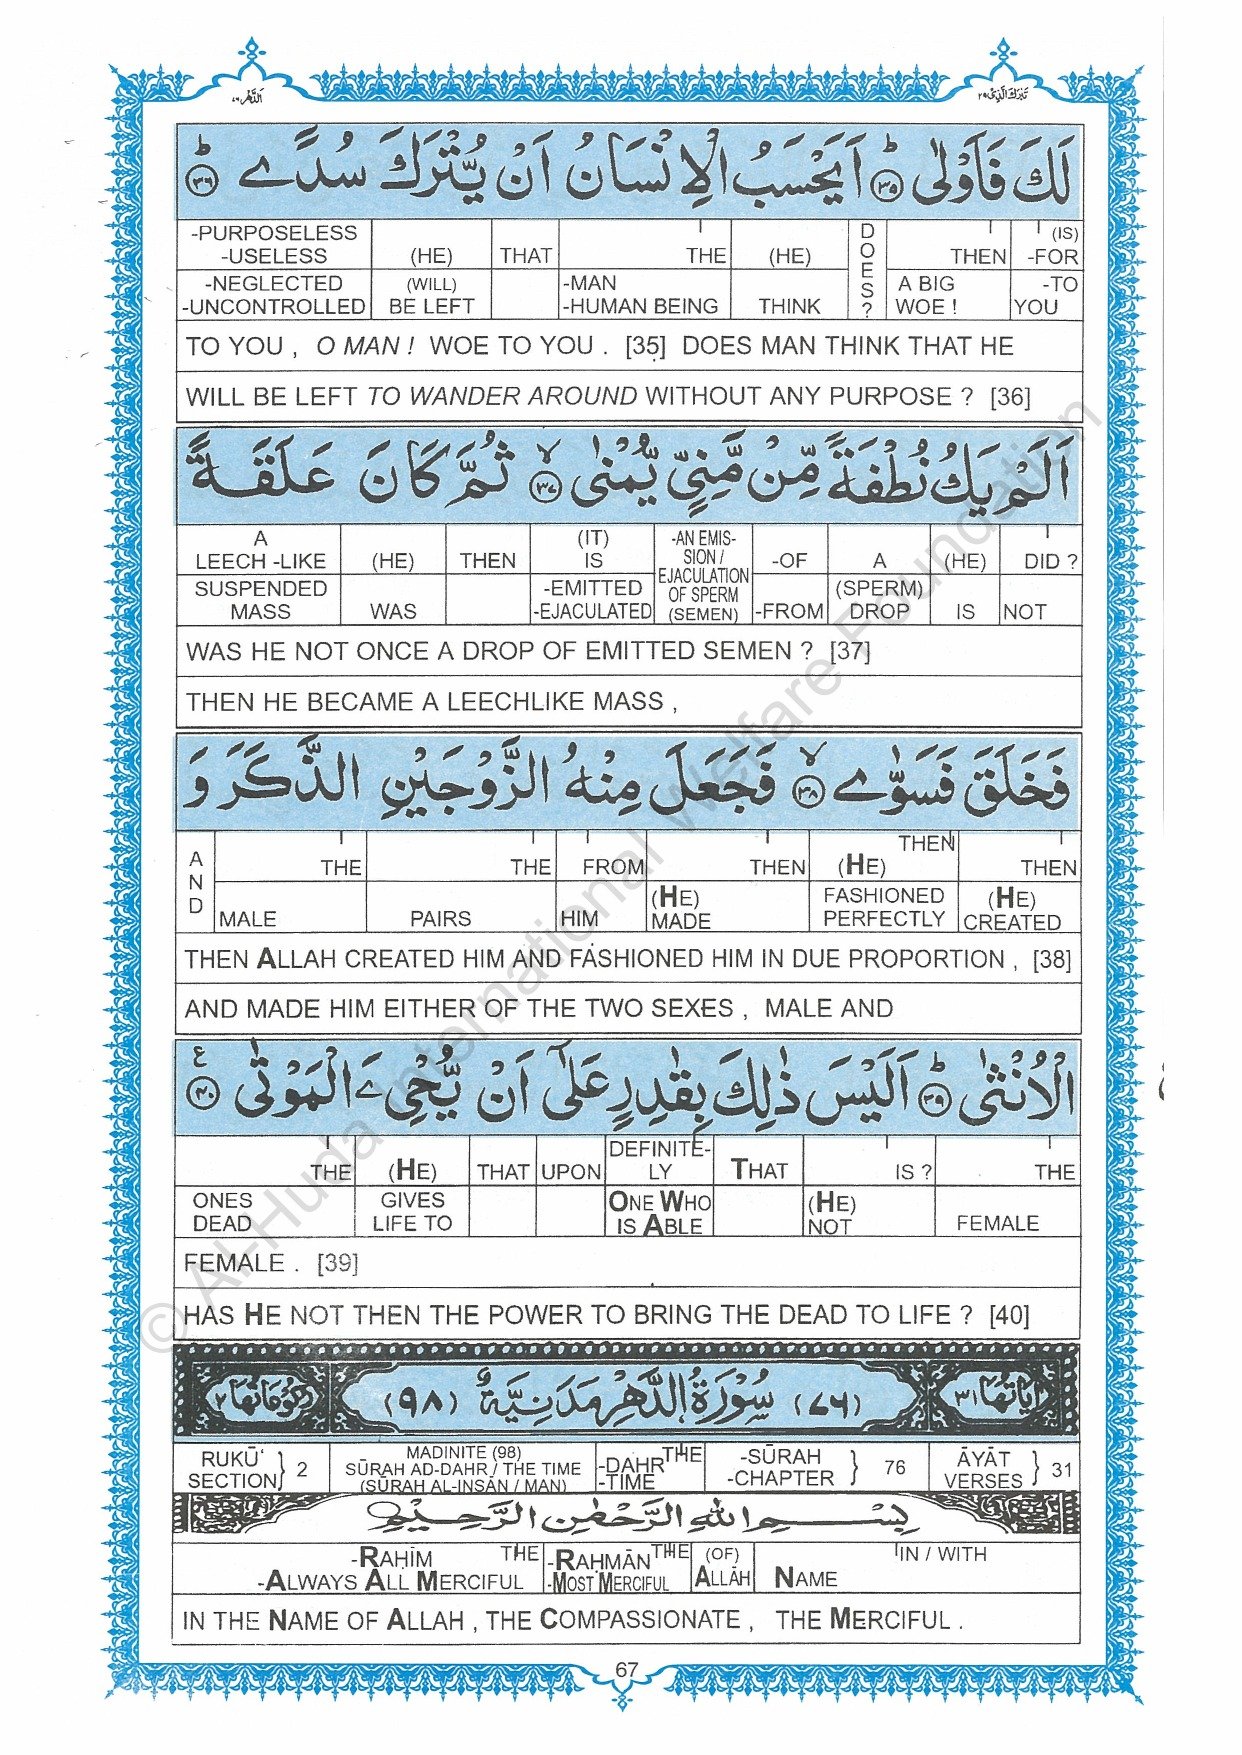 الدّهر ٧٦ تبرك الذى ٢٩
لَكَ فَاَوْلٰى ؕ﴿۳۵﴾ اَيَحْسَبُ الْاِنْسَانُ اَنْ يُّتْرَكَ سُدًےؕ﴿۳۶﴾
-PURPOSELESS (HE) THAT THE (HE) DOES? THEN (IS) -FOR
-USELESS
-NEGLECTED (WILL) -MAN THINK A BIG -TO
-UNCONTROLLED BE LEFT -HUMAN BEING WOE ! YOU
TO YOU , O MAN ! WOE TO YOU . [35] DOES MAN THINK THAT HE
WILL BE LEFT TO WANDER AROUND WITHOUT ANY PURPOSE ? [36]
اَلَمْ يَكُ نُطْفَةً مِّنْ مَّنِيٍّ يُّمْنٰى ۙ﴿۳۷﴾ ثُمَّ كَانَ عَلَقَةً
A (HE) THEN (IT) -AN EMIS- -OF A (HE) DID ?
LEECH -LIKE IS SION /
SUSPENDED WAS -EMITTED EJACULATION -FROM (SPERM) IS NOT
MASS -EJACULATED OF SPERM DROP
(SEMEN)
WAS HE NOT ONCE A DROP OF EMITTED SEMEN ? [37]
THEN HE BECAME A LEECHLIKE MASS ,
فَخَلَقَ فَسَوّٰےۙ﴿۳۸﴾ فَجَعَلَ مِنْهُ الزَّوْجَيْنِ الذَّكَرَ وَ
AND THE THE FROM THEN THEN THEN
(HE)
MALE PAIRS HIM (HE) FASHIONED (HE)
MADE PERFECTLY CREATED
THEN ALLAH CREATED HIM AND FASHIONED HIM IN DUE PROPORTION , [38]
AND MADE HIM EITHER OF THE TWO SEXES , MALE AND
الْاُنْثٰى ؕ﴿۳۹﴾ اَلَيْسَ ذٰلِكَ بِقٰدِرٍ عَلٰٓى اَنْ يُّحْيِۦَ الْمَوْتٰى ﴿۴۰﴾ ع
THE (HE) THAT UPON DEFINITE- THAT IS ? THE
LY
ONES GIVES ONE WHO (HE) FEMALE
DEAD LIFE TO IS ABLE NOT
FEMALE . [39]
HAS HE NOT THEN THE POWER TO BRING THE DEAD TO LIFE ? [40]
اٰيَاتُهَا ٣١ (٧٦) سُوْرَةُ الدَّهْرِ مَدَنِيَّةٌ (٩٨) رُكُوْعَاتُهَا ٢
RUKŪ‘ } 2 MADINITE (98) THE -SŪRAH } 76 ĀYĀT } 31
SECTION SŪRAH AD-DAHR / THE TIME -DAHR -CHAPTER VERSES
(SŪRAH AL-INSĀN / MAN) -TIME
بِسْمِ اللهِ الرَّحْمٰنِ الرَّحِيْمِ
-RAHĪM THE -RAHMĀN THE (OF) IN / WITH
-ALWAYS ALL MERCIFUL -MOST MERCIFUL ALLĀH NAME
IN THE NAME OF ALLAH , THE COMPASSIONATE , THE MERCIFUL .
67
© Al-Huda International Welfare Foundation